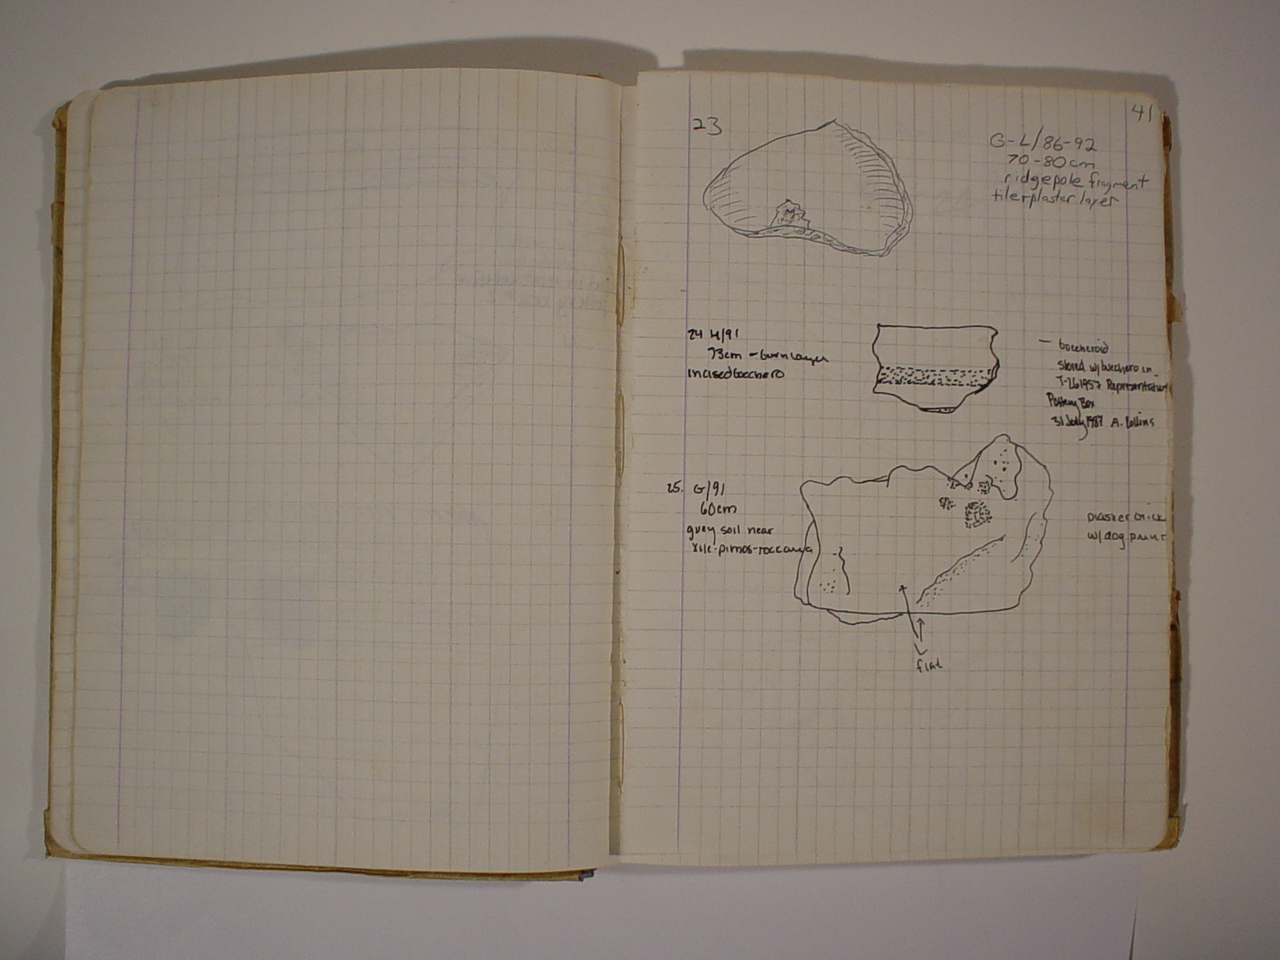 41
23
G-L/86-92
70-80cm
ridgepole fragment
tile+plaster layer
24 H/91
73cm - burn layer
incised bucchero
- buccheroid
stored w/ bucchero in
T-26 1957 Representative
Pottery Box
31 July 1987 A. Collins
25. G/91
60cm
grey soil near
tile-pithos-roccaccia
plaster brick
w/ dog print
flat